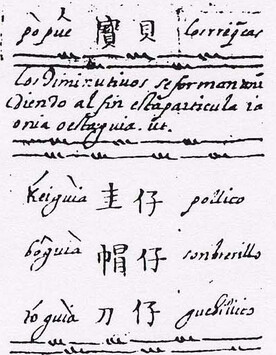 pò pùe 寶貝 los riq̃as
Los Diminutivos se forman aña
diendo al fin esta particula ia
o nia o esta guia. ut.
kei guià 圭仔 pollico
bô guià 帽仔 sonbrerillo
to guià 刀仔 guchillico